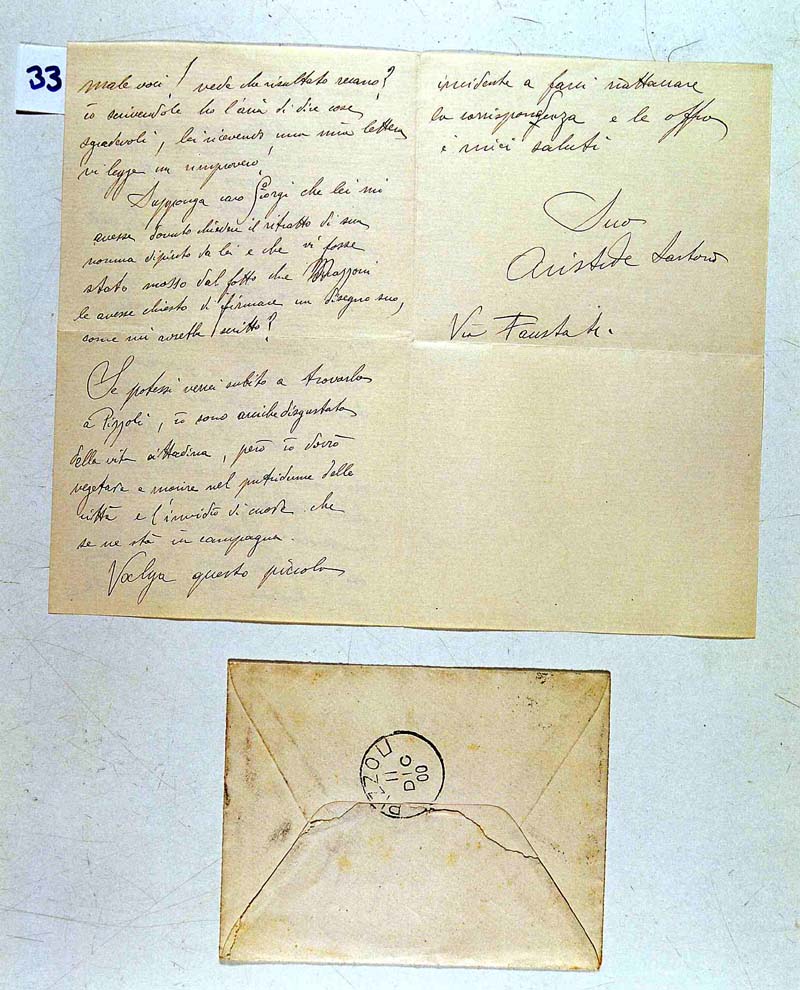 33
male voci! vede che risultato recano?
io scrivendole ho l'aria di dire cose
sgradevoli, lei ricevendo una mia lettera
vi legge un rimprovero!
Supponga caro Giorgi che lei mi
avesse dovuto chiedere il ritratto di sua
nonna dipinto da lei e che vi fosse
stato mosso dal fatto che Mazzoni
le avesse chiesto di firmare un disegno suo,
come mi avrebbe scritto?
Se potessi verrei subito a trovarla
a Pizzoli, io sono anche disgustato
della vita cittadina, però io dovrò
vegetare e morire nel putridume delle
città e l'invidio di cuore che
se ne sta in campagna.
Valga questo piccolo
incidente a farci riattaccare
la corrispondenza e le offro
i miei saluti
Suo
Aristide Sartorio
Via Fausta
PIZZOLI
11
DIC
00